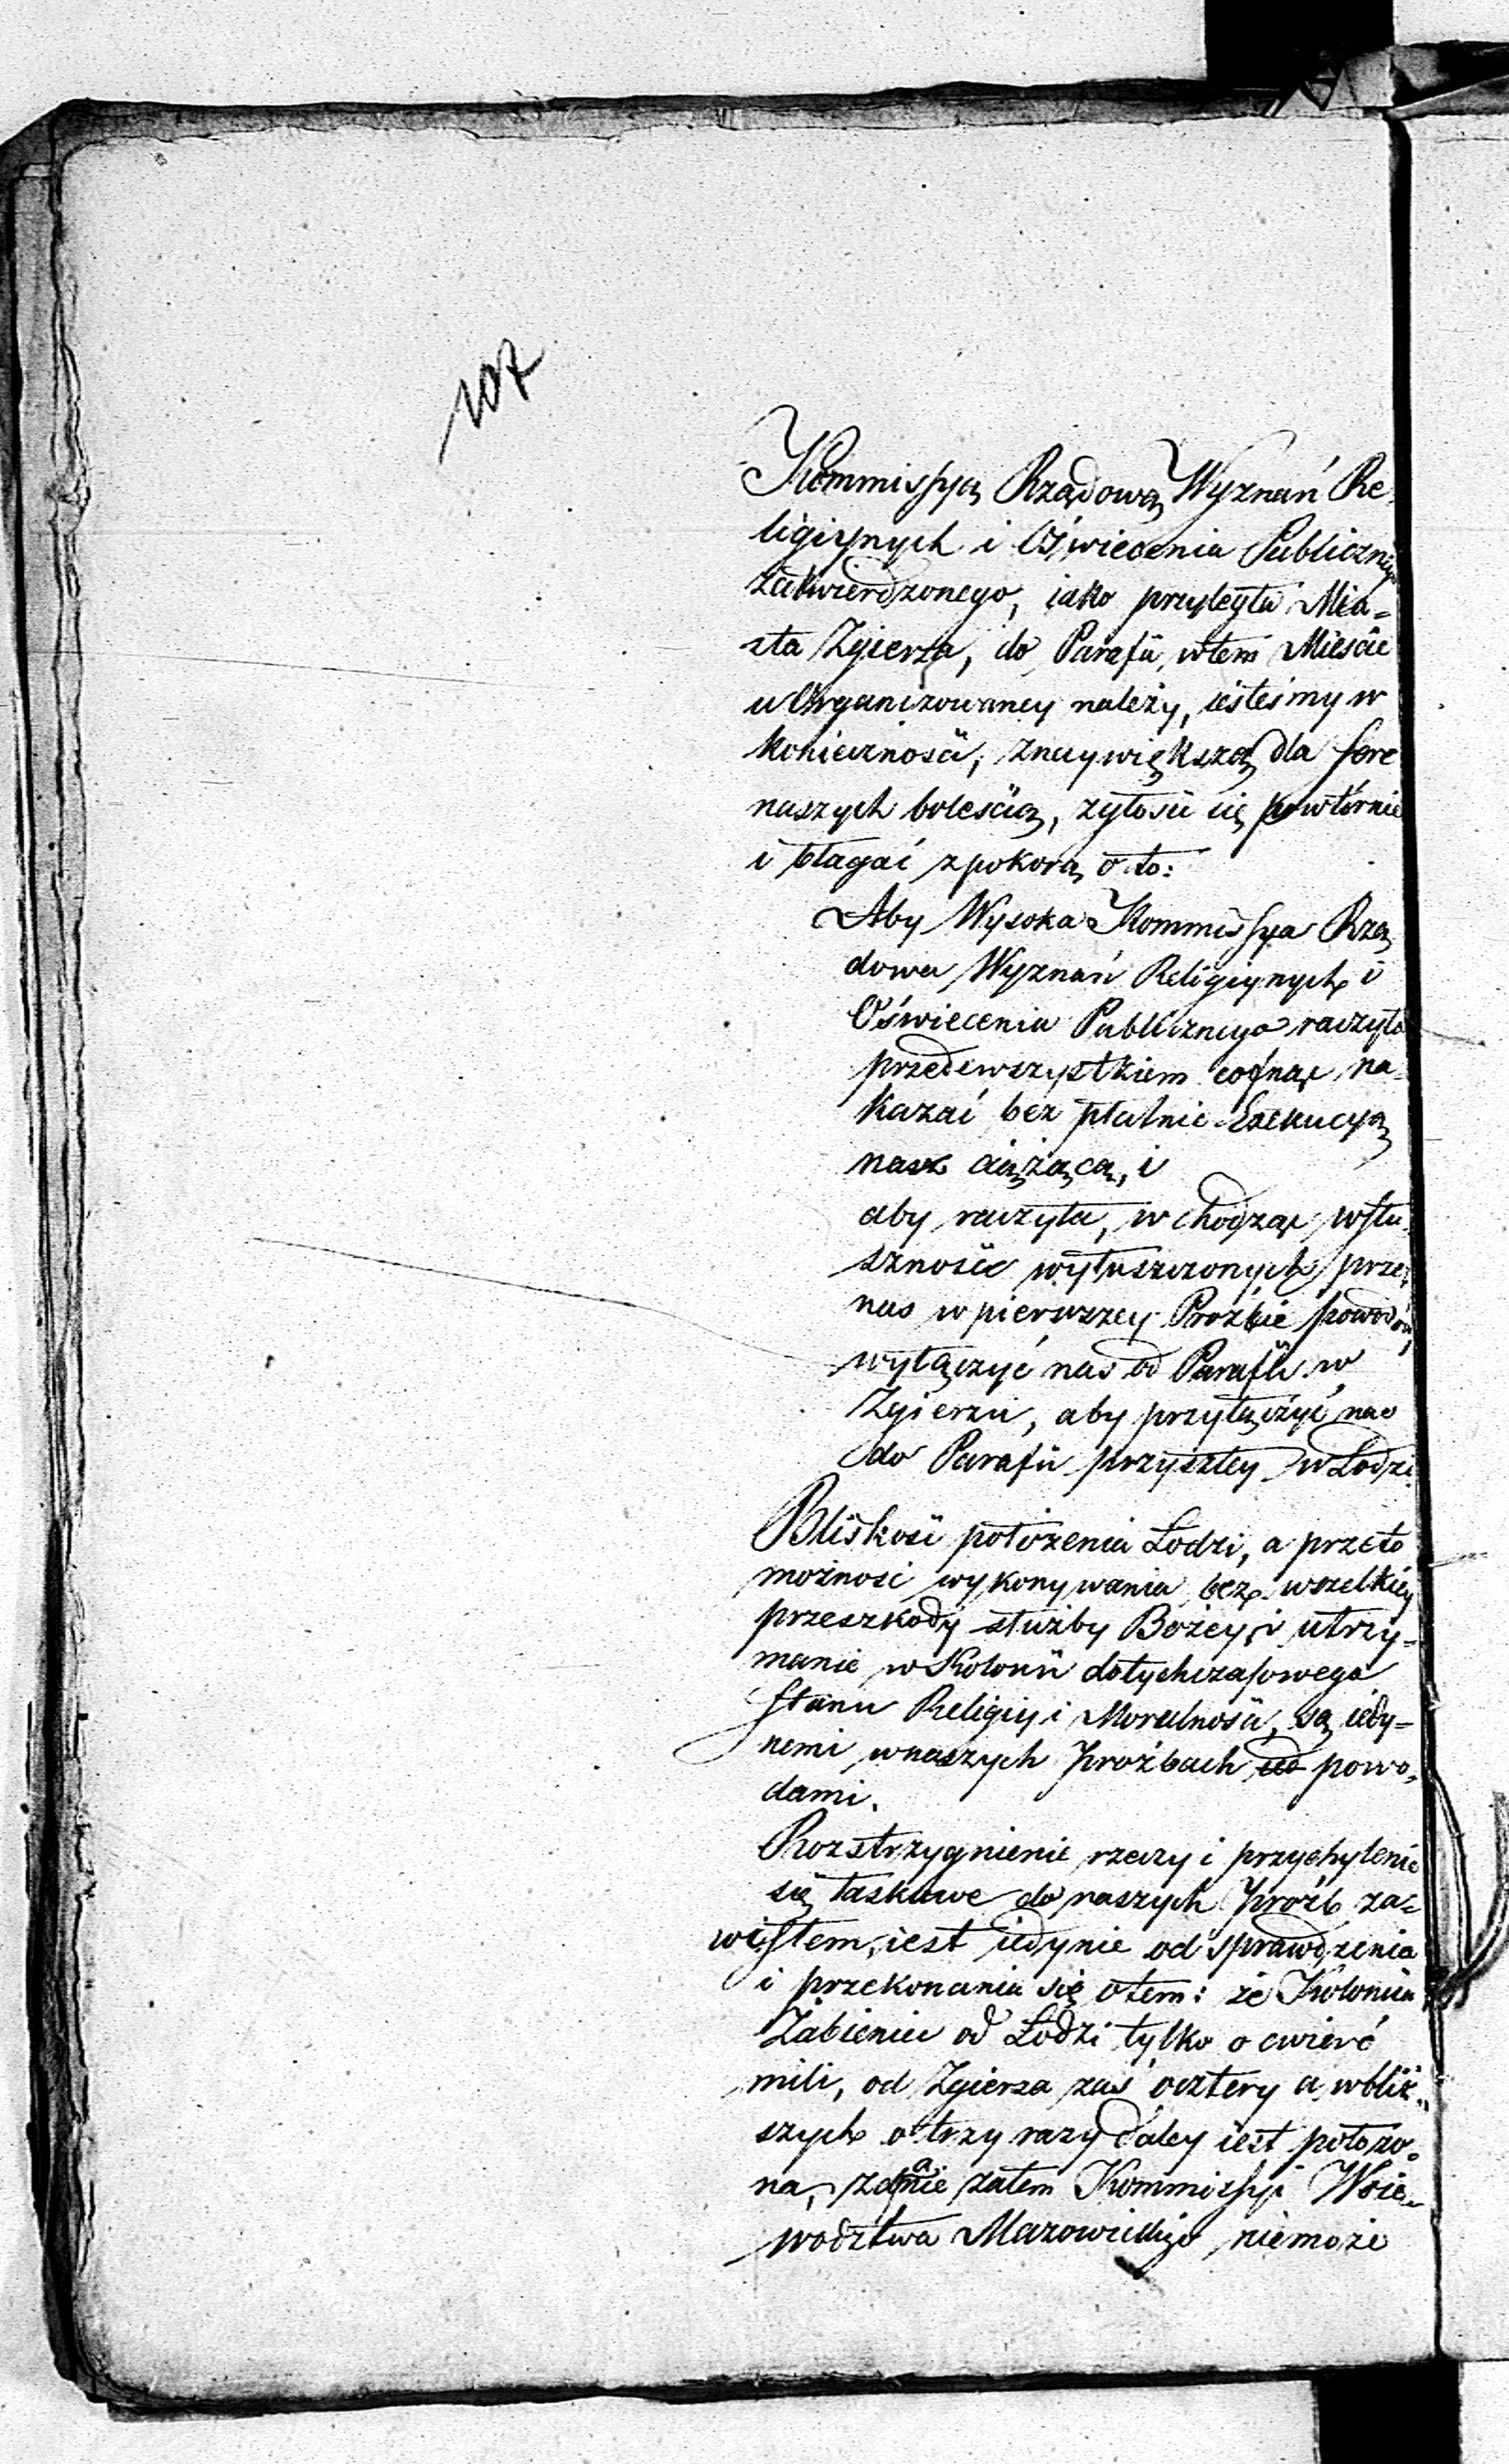 107
Kommissyą Rządową Wyznań Re-
ligiynych i Oświecenia Publiczneg
zatwierdzonego, iako przyległa Mia=
sta Zgierza, do Parafii, wtem Mieście
uOrganizowaney należy, iesteśmy w
konieczności, znaywiększą dla serc
naszych boleścią, zgłosić się powtórnie
i błagać zpokorą o to:
Aby Wysoka Kommissya Rzą
dowa Wyznań Religiynych i
Oświecenia Publicznego raczyła
przedewszystkiem cofnąć na-
kazać bez płatnie Exekucyą
nasz ciążącą, i
aby raczyła, wchodząc wsłu-
szność wyłuszczonych prze
nas wpierwszey Proźbie powodów,
wyłączyć nas od Parafii w
Zgierzu, aby przyłączyć nas
do Parafii przyszłey w Łodzi.
Bliskość położenia Łodzi, a przeto
możność wykonywania bez wszelkiey
przeszkody służby Bożey, i utrzy=
manie w Kolonii dotychczasowego
stanu Religiy i Moralności, są iedy=
nemi wnaszych proźbach powo-
dami.
Rozstrzygnienie rzeczy i przychylenie
się łaskawe do naszych próźb za=
wisłem, iest iedynie od sprawdzenia
i przekonania się otem: że Kolonia
Żabieniec od Łodzi tylko o cwierć
mili, od Zgierza zaś ocztery a wbliż-
szych o trzy razy daley iest położo-
na, zdanie zatem Kommissyi Woie-
wodztwa Mazowieckiego niemoże